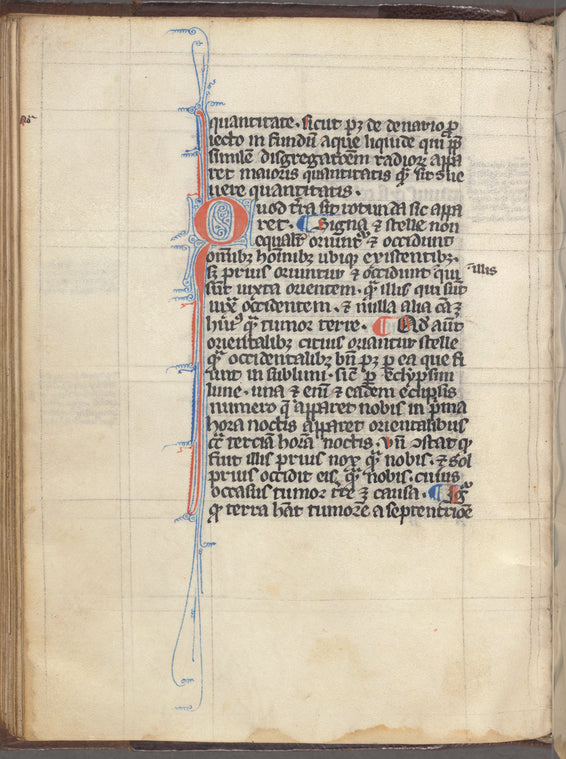 quantitate. sicut pꝫ de denario ꝓ
iecto in fundũ aque liquide qui ꝓp̃
similẽ disgregatõem radioꝝ appa
ret maioris quantitatis q̃ sit sue
uere quantitatis.
Quod tr̃a sit rotunda sic appa
ret. Signa ⁊ stelle non
equalr̃ oriunt᷑ ⁊ occidunt
om̃ibꝫ hoĩnibꝫ ubiqꝫ existentibꝫ.
sꝫ prius oriuntur ⁊ occidunt qui
illis
sũt iuxta orientem. q̃ illis qui sũt
iuxᵃ occidentem. ⁊ nulla alia cã ꝫ
huiꝰ q̃ tumor terre. Qđ aũt
orientalibꝫ citius oriantur stelle
q̃ occidentalibꝫ bñ pꝫ p ea que fi
unt in subluni. sic̃ p eclypsim
lune. una ⁊ eni᷑ ⁊ eadem eclipsis
numero q̃ apparet nobis in p̃ma
hora noctis apparet orientalibus
cc̃ terciam horã noctis. vñ ↄstat qͥ
fuit illis prius nox q̃ nobis. ⁊ sol
prius occidit eis q̃ nobis. cuius
occasus tumor tr̃e ꝫ causa. Igᵒ
qͥ terra hãt tumorẽ a septentriõe